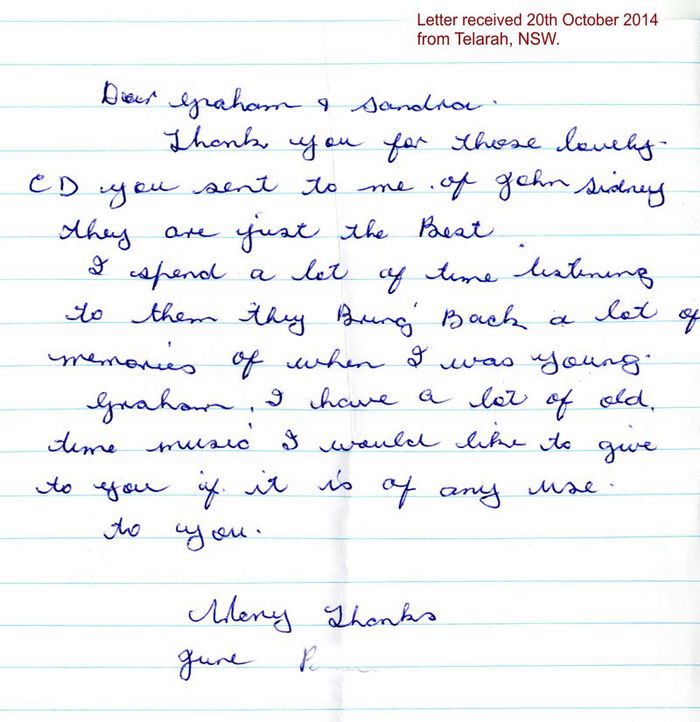 Letter received 20th October 2014
from Telarah, NSW.
Dear Graham & Sandra.
Thank you for those lovely
CD you sent to me. of John Sidney
they are just the Best
I spend a lot of time listening
to them they Bring Back a lot of
memories of when I was young.
Graham, I have a lot of old.
time music I would like to give
to you if. it is of any use.
to you.
Many Thanks
June